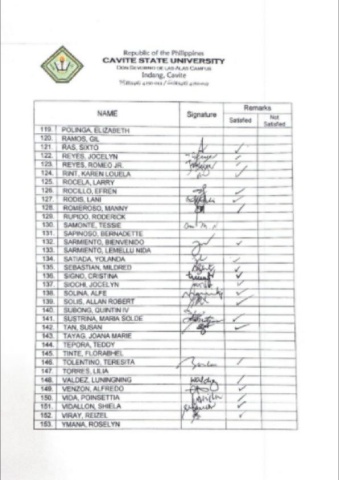 Republic of the Philippines
CAVITE STATE UNIVERSITY
DON SEVERINO DE LAS ALAS CAMPUS
Indang, Cavite
NAME Signature Remarks
Satisfied Not Satisfied
119. POLINGA, ELIZABETH
120. RAMOS, GIL
121. RAS, SIXTO
122. REYES, JOCELYN
123. REYES, ROMEO JR.
124. RINT, KAREN LOUELA
125. ROCELA, LARRY
126. ROCILLO, EFREN
127. RODIS, LANI
128. ROMEROSO, MANNY
129. RUPIDO, RODERICK
130. SAMONTE, TESSIE
131. SAPINOSO, BERNADETTE
132. SARMIENTO, BIENVENDO
133. SARMIENTO, LEMELLU NIDA
134. SATIADA, YOLANDA
135. SEBASTIAN, MILDRED
136. SIGNO, CRISTINA
137. SIOCHI, JOCELYN
138. SOLINA, ALFE
139. SOLIS, ALLAN ROBERT
140. SUBONG, QUINTIN IV
141. SUSTRINA, MARIA SOLDE
142. TAN, SUSAN
143. TAYAG, JOANA MARIE
144. TEPORA, TEDDY
145. TINTE, FLORABHEL
146. TOLENTINO, TERESITA
147. TORRES, LILIA
148. VALDEZ, LUNINGNING
149. VENZON, ALFREDO
150. VIDA, POINSETTIA
151. VIDALLON, SHIELA
152. VIRAY, REIZEL
153. YMANA, ROSELYN